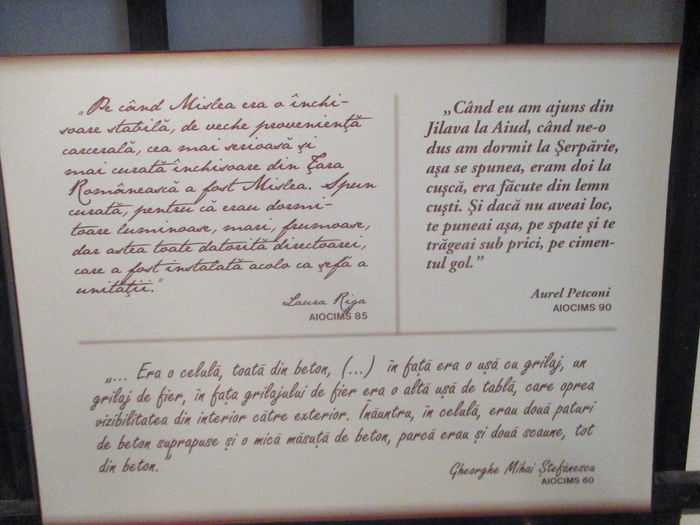 „Pe când Mislea era o închi-
soare stabilă, de veche provenienţă
carcerală, cea mai serioasă şi
mai curată închisoare din Ţara
Românească a fost Mislea. Spun
curată, pentru că erau dormi-
toare luminoase, mari, frumoase,
dar astea toate datorită directoarei,
care a fost instalată acolo ca şefă a
unităţii.”
Laura Riga
AIOCIMS 85
„Când eu am ajuns din
Jilava la Aiud, când ne-o
dus am dormit la Şerpărie,
aşa se spunea, eram doi la
cuşcă, era făcute din lemn
cuşti. Şi dacă nu aveai loc,
te puneai aşa, pe spate şi te
trăgeai sub prici, pe cimen-
tul gol.”
Aurel Petconi
AIOCIMS 90
„... Era o celulă, toată din beton, (...) în faţă era o uşă cu grilaj, un
grilaj de fier, în faţa grilajului de fier era o altă uşă de tablă, care oprea
vizibilitatea din interior către exterior. Înăuntru, în celulă, erau două paturi
de beton suprapuse şi o mică măsuţă de beton, parcă erau şi două scaune, tot
din beton.”
Gheorghe Mihai Ştefănescu
AIOCIMS 60